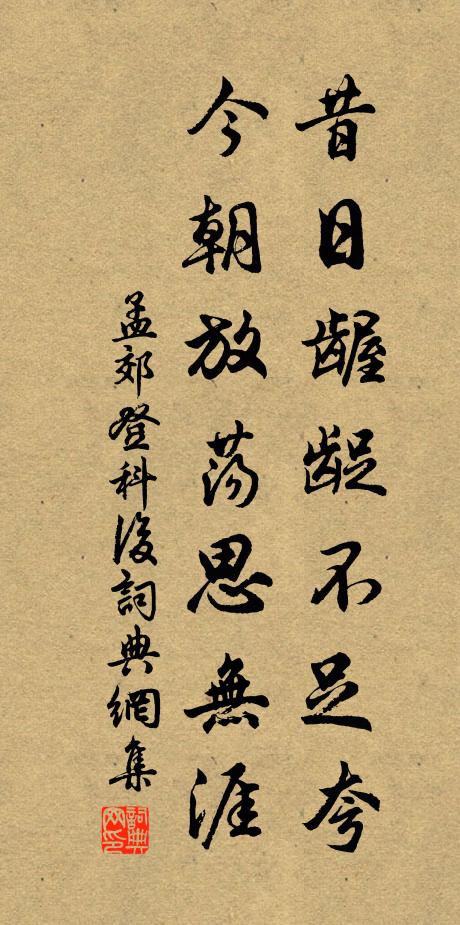 昔日齷齪不足夸
今朝放蕩思無涯
孟郊登科後詞典網集
詞典網印